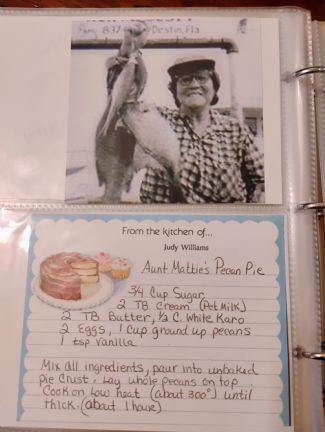 837-
Destin, Fla
From the kitchen of...
Judy Williams
Aunt Mattie's Pecan Pie
3/4 Cup Sugar
2 TB Cream (Pet Milk)
2 TB Butter, 1/2 C. White Karo
2 Eggs, 1 cup ground up pecans
1 tsp vanilla
Mix all ingredients, pour into unbaked
pie crust. Lay whole pecans on top.
Cook on low heat (about 300°) until
thick. (about 1 hour)